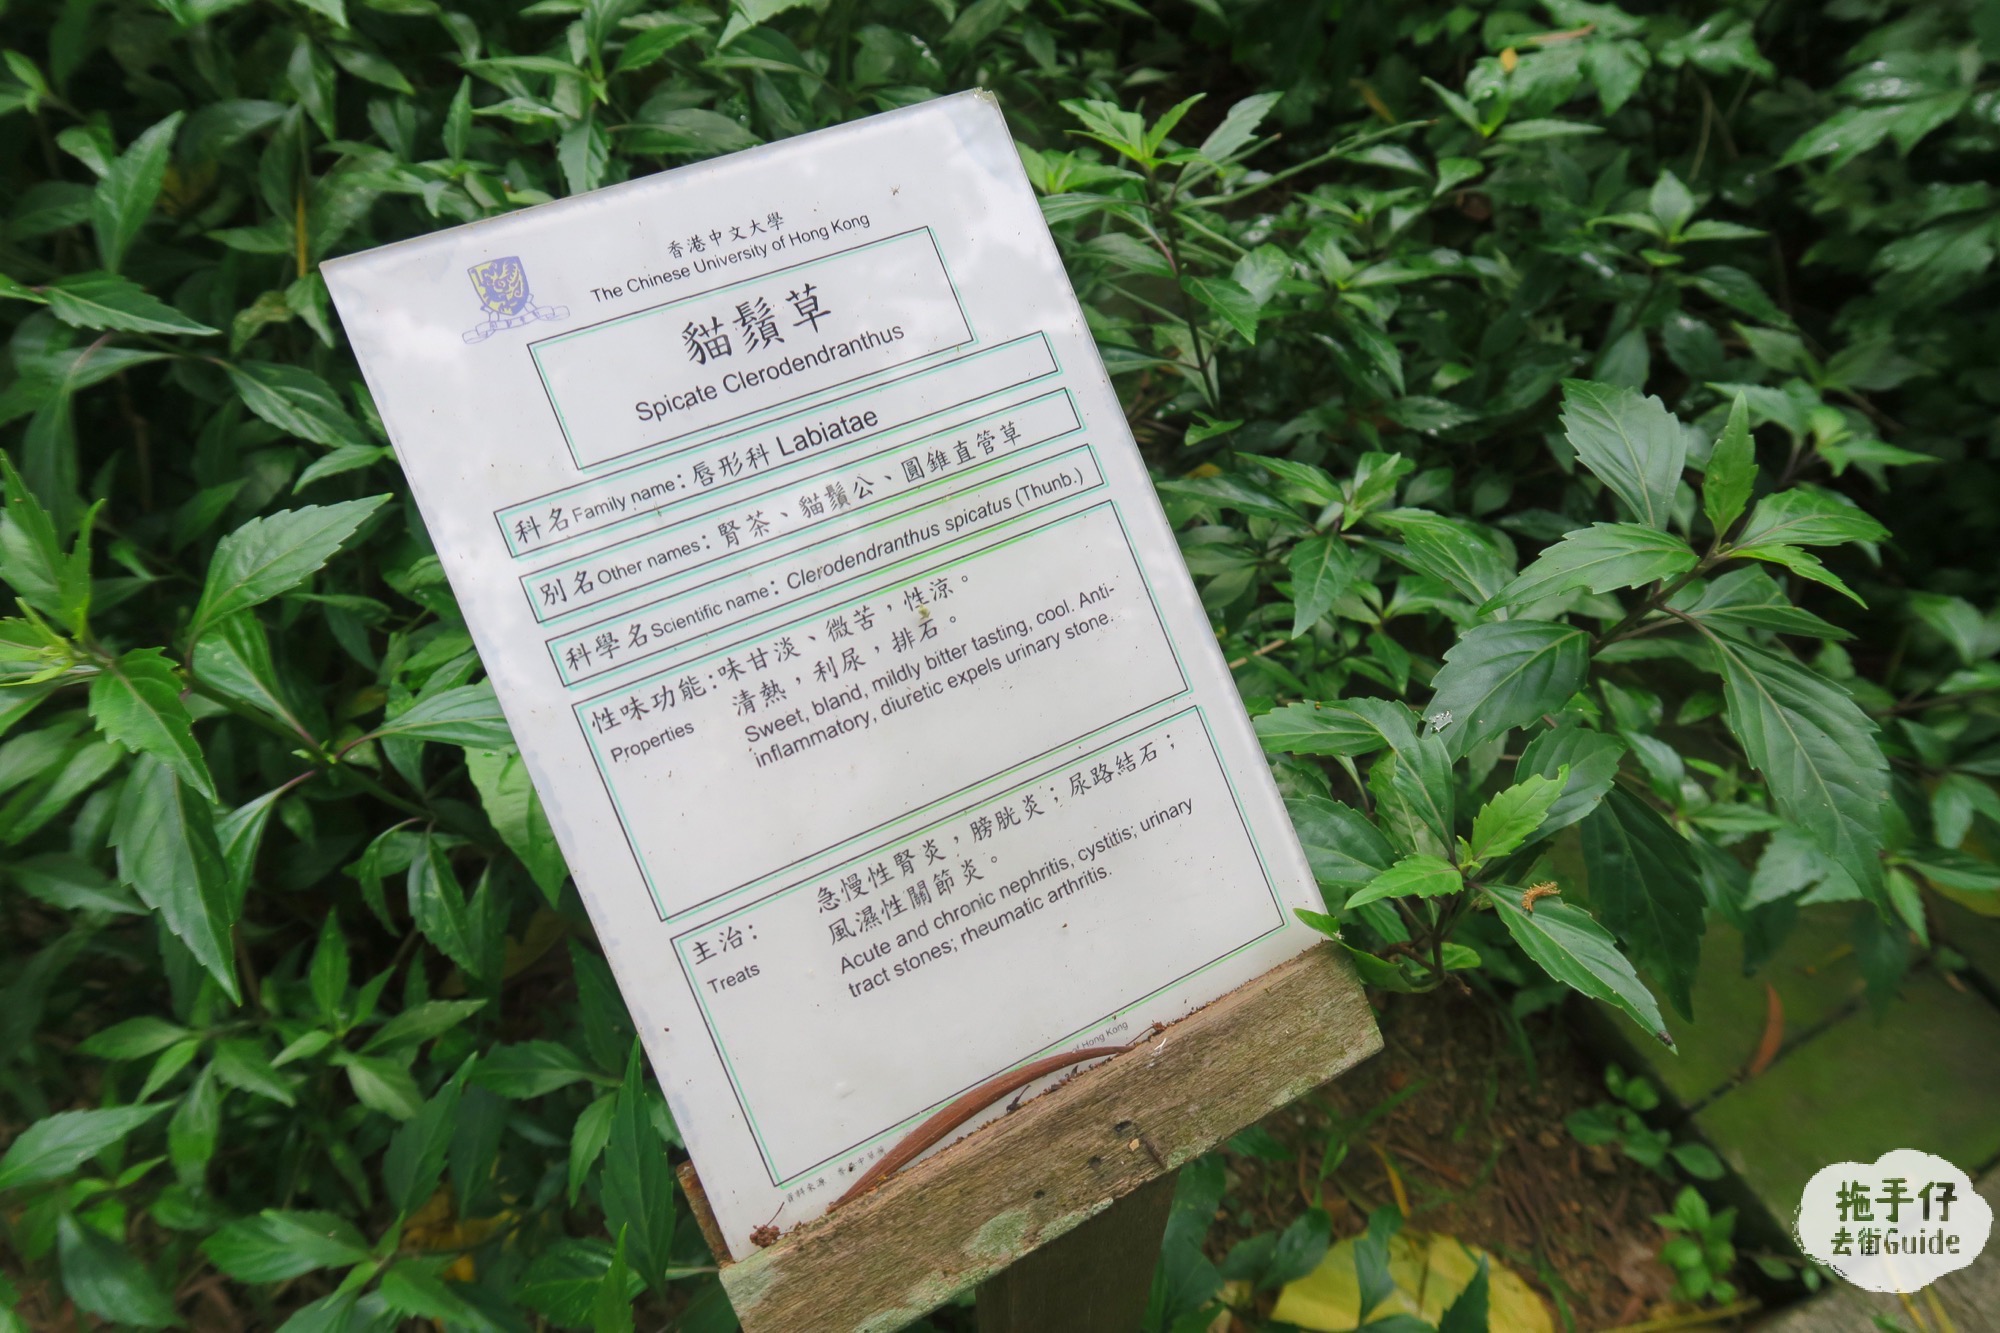 香港中文大學
The Chinese University of Hong Kong
貓鬚草
Spicate Clerodendranthus
科名Family name：唇形科 Labiatae
別名Other names：腎茶、貓鬚公、圓錐直管草
科學名Scientific name：Clerodendranthus spicatus (Thunb.)
性味功能：味甘淡、微苦，性涼。
Properties 清熱，利尿，排石。
Sweet, bland, mildly bitter tasting, cool. Anti-
inflammatory, diuretic expels urinary stone.
主治：急慢性腎炎，膀胱炎；尿路結石；
風濕性關節炎。
Treats Acute and chronic nephritis, cystitis; urinary
tract stones; rheumatic arthritis.
資料來源
of Hong Kong
拖手仔
去街Guide